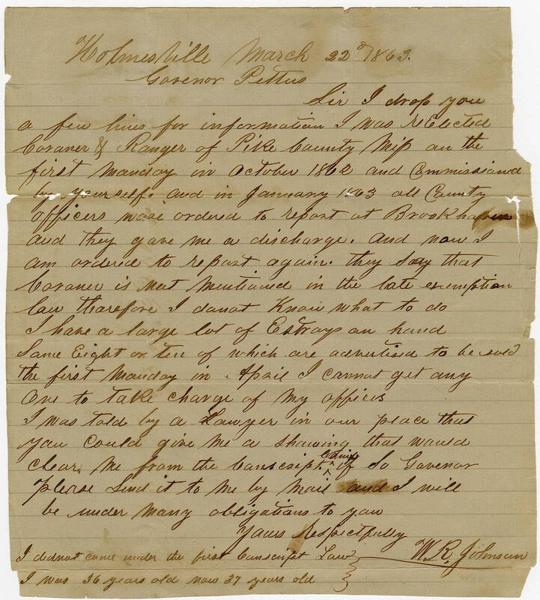 Holmesville March 22d 1863.
Govenor Pettus
Sir I drop you
a few lines for information I was ReElected
Coroner & Ranger of Pike County Miss on the
first Monday in October 1862 and Commissiond
by yourself. and in January 1863 all County
officers ware ordered to report at Brookhaven
and they gave me a discharge. and now I
am ordered to report again. they say that
Coroner is not Mentioned in the late exemption
law therefore I donot Know what to do
I have a large lot of Estrays on hand
Some Eight or ten of which are advertised to be sold
the first Monday in April I cannot get any
one to take charge of my offices
I was told by a Lawyer in our place that
you Could give me a showing that would
Clear me from the Conscript. If So Govenor
please send it to me by mail and I will
be under many obligations to you
Yours Respectfully
W. R. Johnson
I didnot come under the first Conscript Law
I was 36 years old now 37 years old